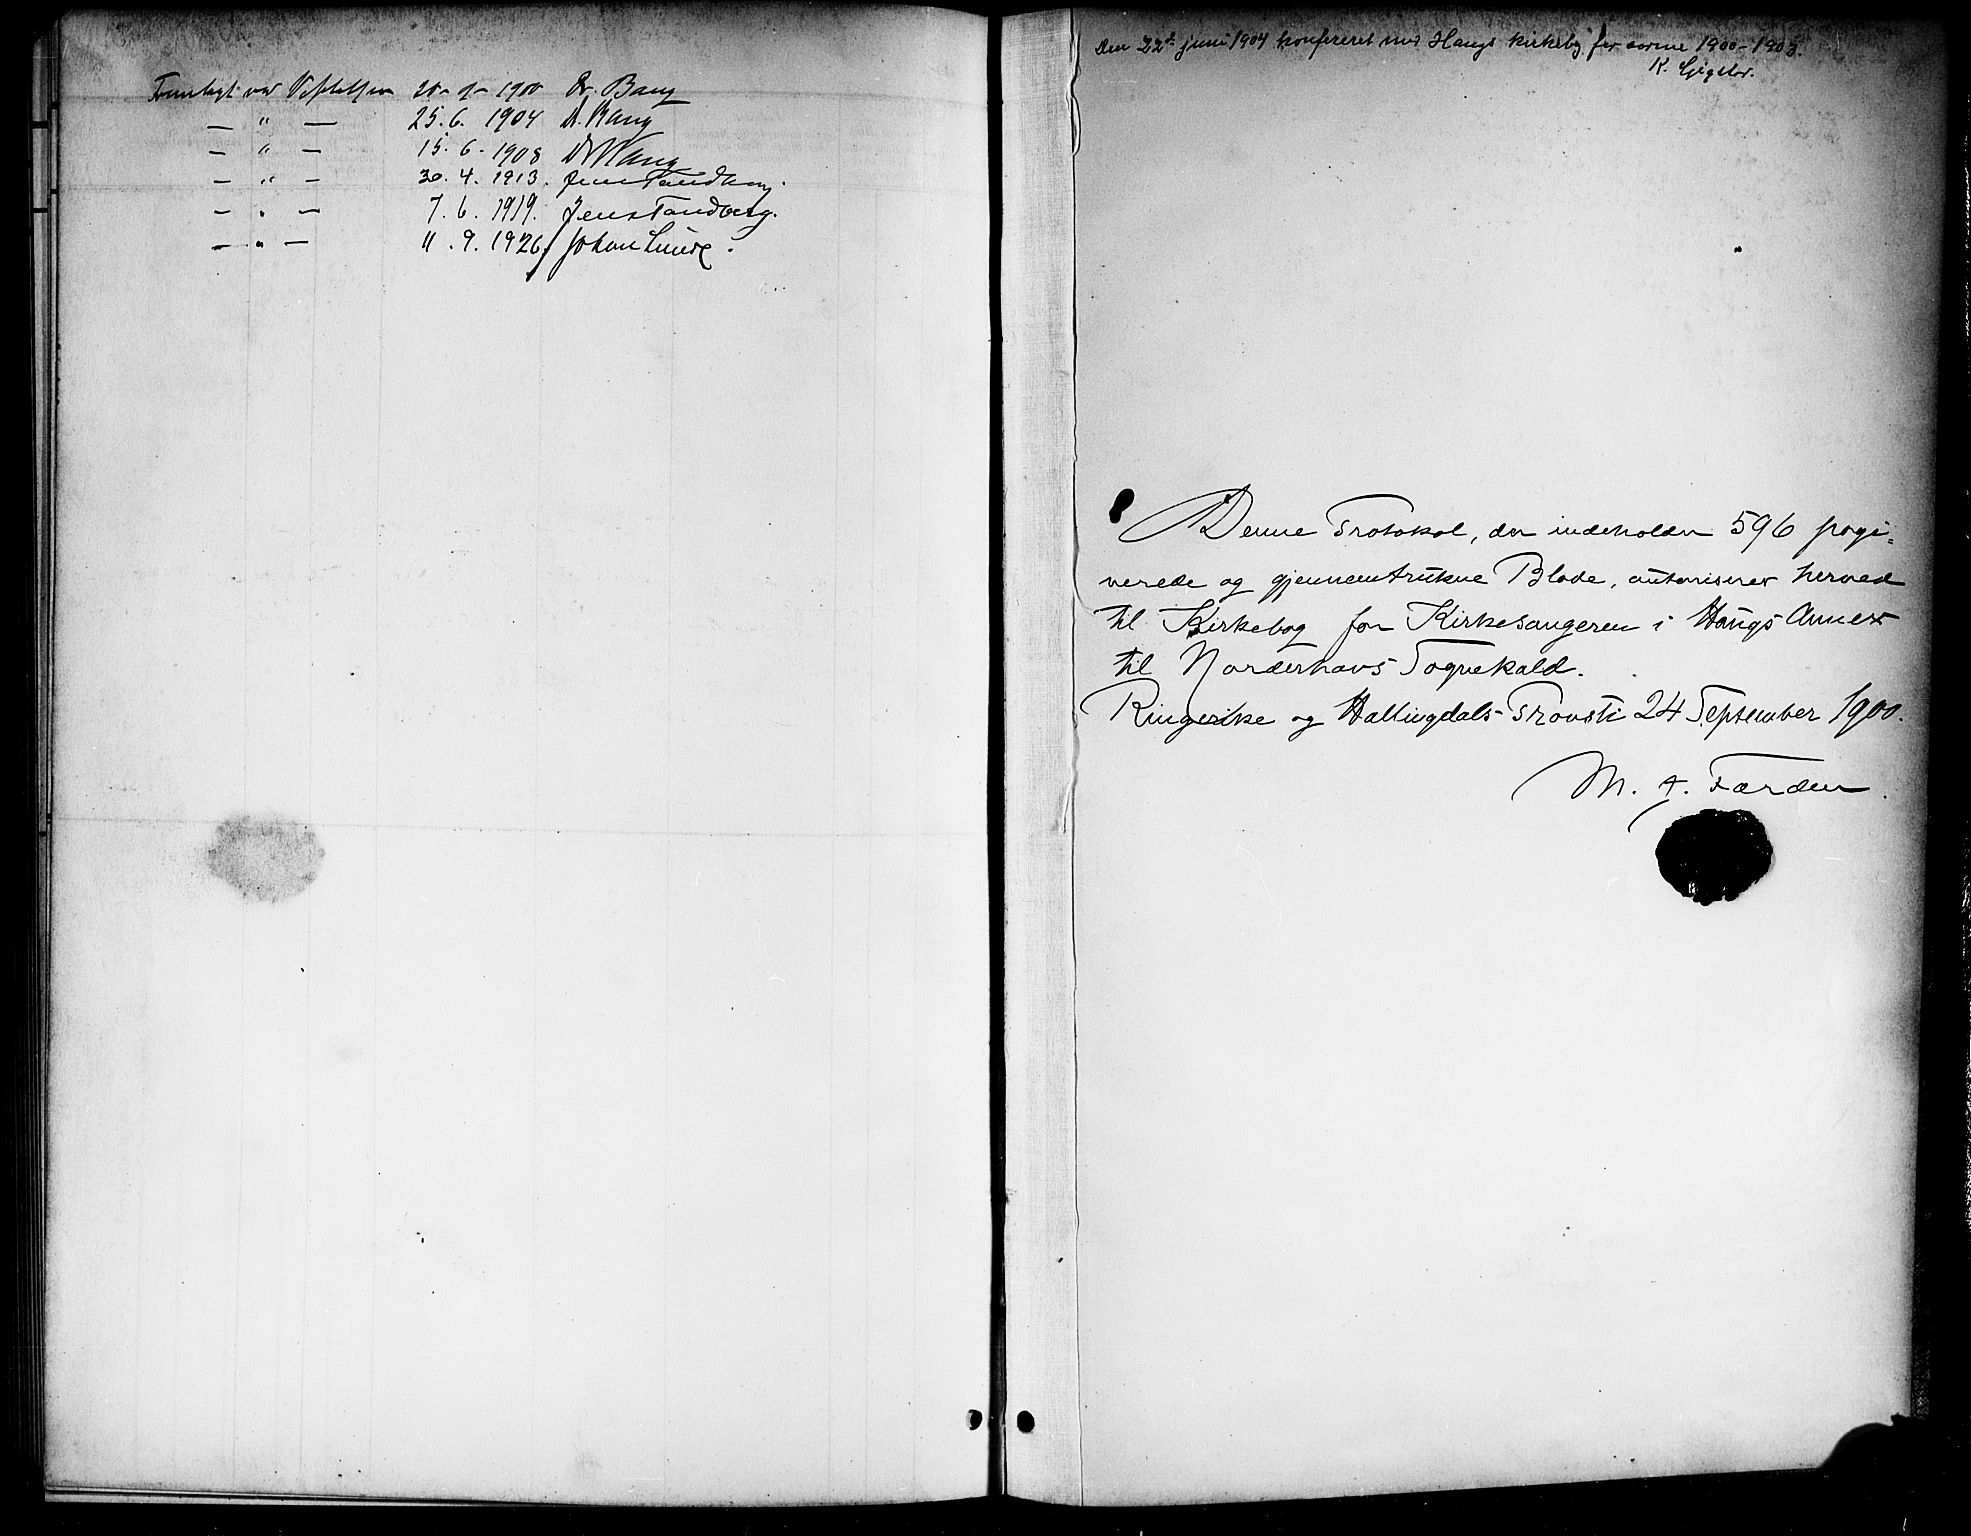 Fremlagt ved Visitatsen 1900 Dr. Bang
— " — 25. 6. 1904 Dr. Bang
— " — 15. 6. 1908 Dr Bang
— " — 30. 4. 1913. Jens Tandberg.
— " — 7. 6. 1919. Jens Tandberg.
— " — 11. 9. 1926. Johan Lunde.
Den 22de juni 1904 konfereret med Haugs kirkebog for aarene 1900-1903.
K.
Denne Protokol, der indeholder 596 pagi-
nerede og gjennemtrukne Blade, autoriseres herved
til Kirkebog for Kirkesangeren i Haugs Annex
til Norderhovs Sognekald.
Ringerike og Hallingdals Provsti 24 September 1900.
M. J. Færden.